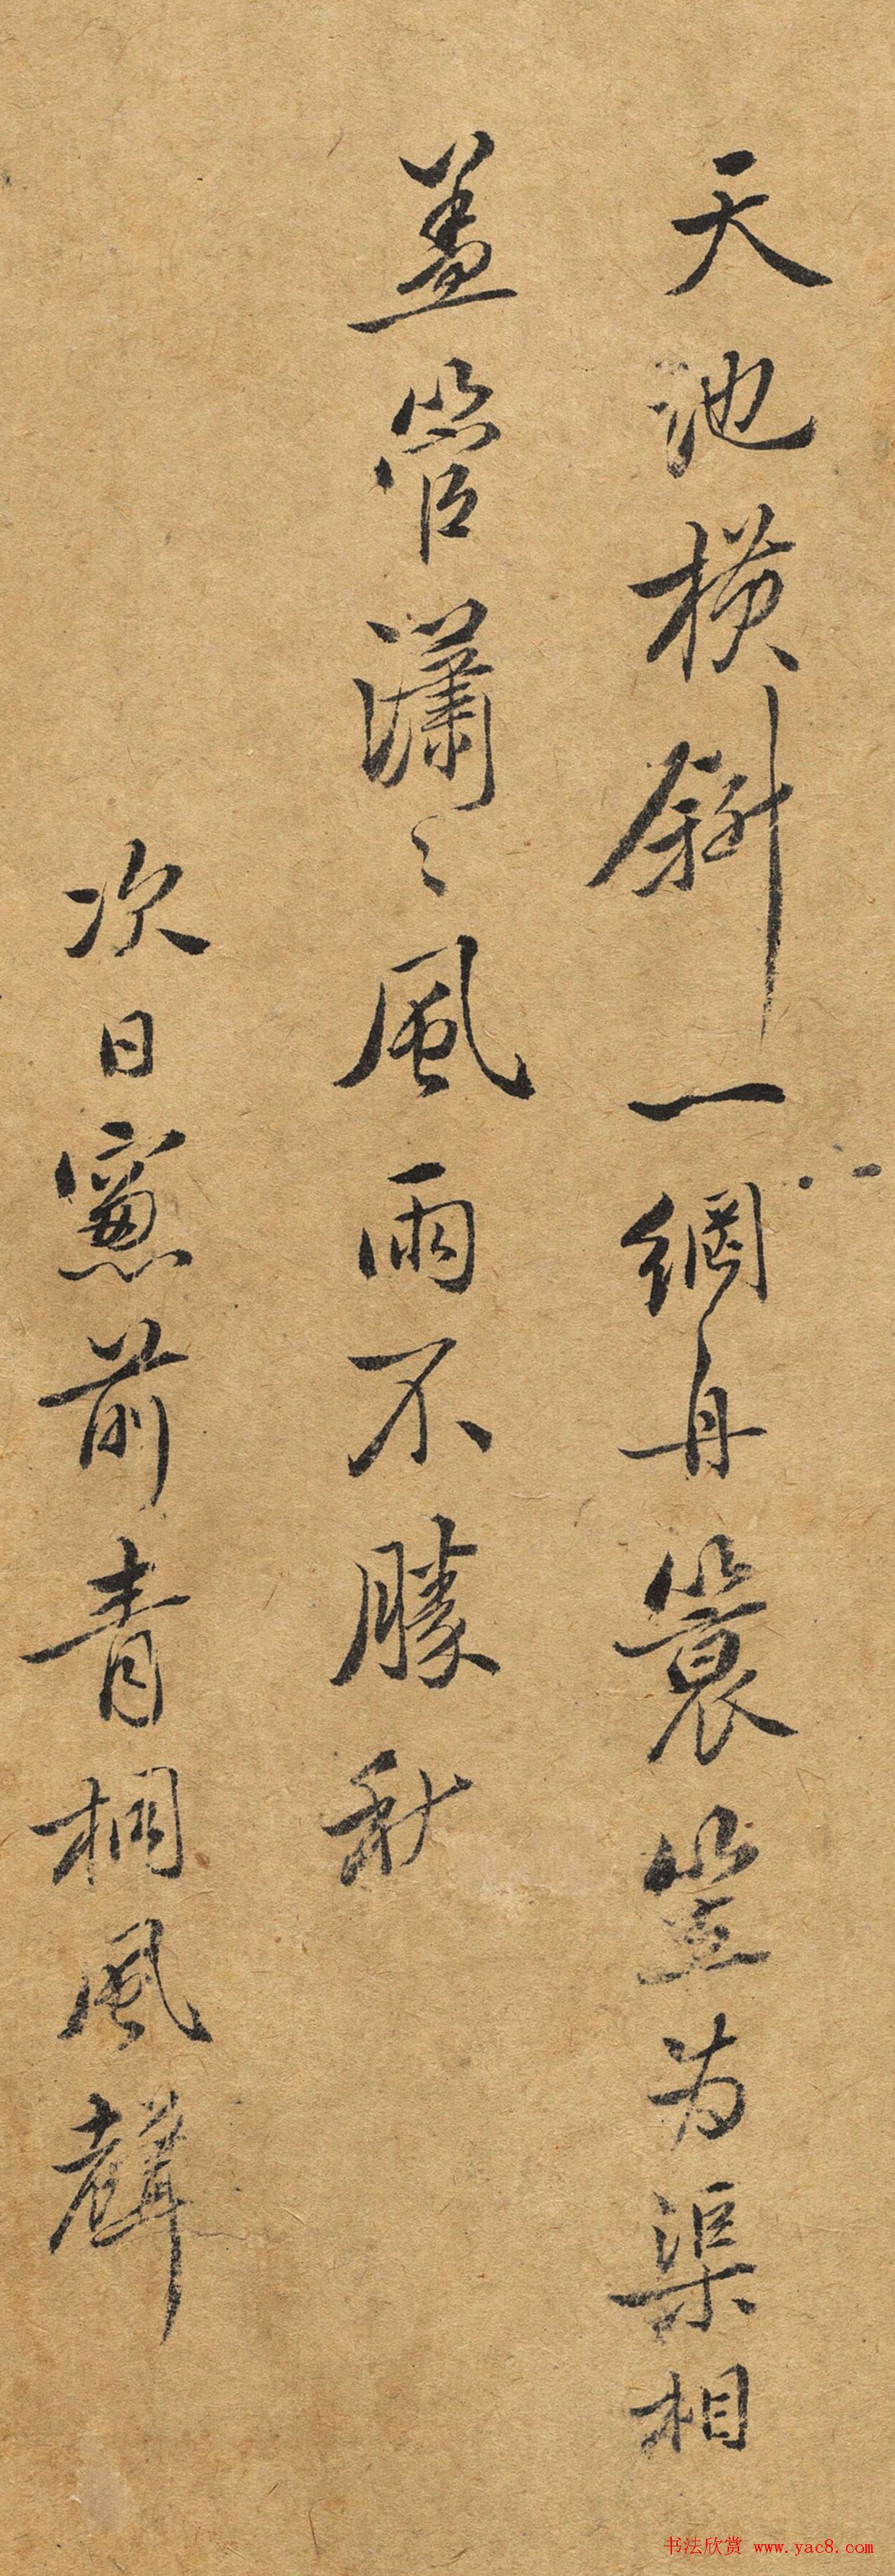 天池橫斜一網舟簑笠為渠相
蓋管瀟〻風雨不勝秋
次日窻前青桐風聲
书法欣赏 www.yac8.com